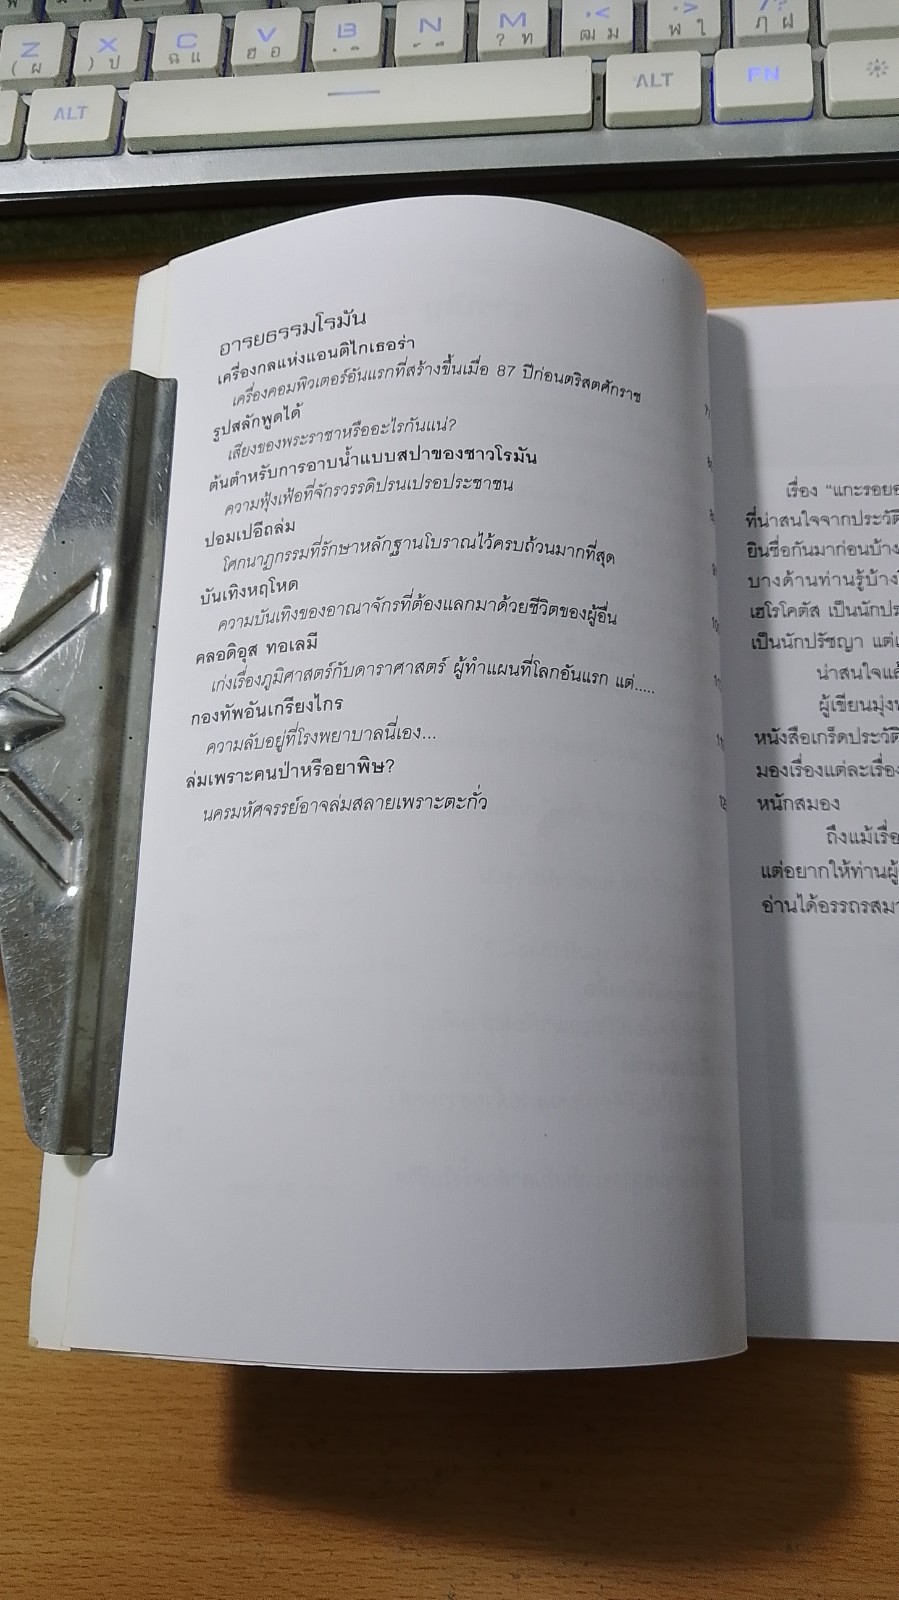 Z
X
C
V
B
N
M
( ผ
) ป
ฉ แ
ฮ อ
? ท
ฒ ม
ฬ ใ
ฦ ฝ
ALT
ALT
FN
อารยธรรมโรมัน
เครื่องกลแห่งแอนติไกเธอร่า
เครื่องคอมพิวเตอร์อันแรกที่สร้างขึ้นเมื่อ 87 ปีก่อนคริสตศักราช
รูปสลักพูดได้
เสียงของพระราชาหรืออะไรกันแน่?
ต้นตำหรับการอาบน้ำแบบสปาของชาวโรมัน
ความฟุ้งเฟ้อที่จักรวรรดิปรนเปรอประชาชน
ปอมเปอีถล่ม
โศกนาฏกรรมที่รักษาหลักฐานโบราณไว้ครบถ้วนมากที่สุด
บันเทิงหฤโหด
ความบันเทิงของอาณาจักรที่ต้องแลกมาด้วยชีวิตของผู้อื่น
คลอดิอุส ทอเลมี
เก่งเรื่องภูมิศาสตร์กับดาราศาสตร์ ผู้ทำแผนที่โลกอันแรก แต่.....
กองทัพอันเกรียงไกร
ความลับอยู่ที่โรงพยาบาลนี่เอง...
ล่มเพราะคนป่าหรือยาพิษ?
นครมหัศจรรย์อาจล่มสลายเพราะตะกั่ว
เรื่อง "แกะรอย
ที่น่าสนใจจากประวัติ
ยินชื่อกันมาก่อนบ้าง
บางด้านท่านรู้บ้าง
เฮโรโดตัส เป็นนัก
เป็นนักปรัชญา แต่
น่าสนใจแล้
ผู้เขียนมุ่ง
หนังสือเกร็ดประวัติ
มองเรื่องแต่ละเรื่อง
หนักสมอง
ถึงแม้เรื่อ
แต่อยากให้ท่านผู้
อ่านได้อรรถรส